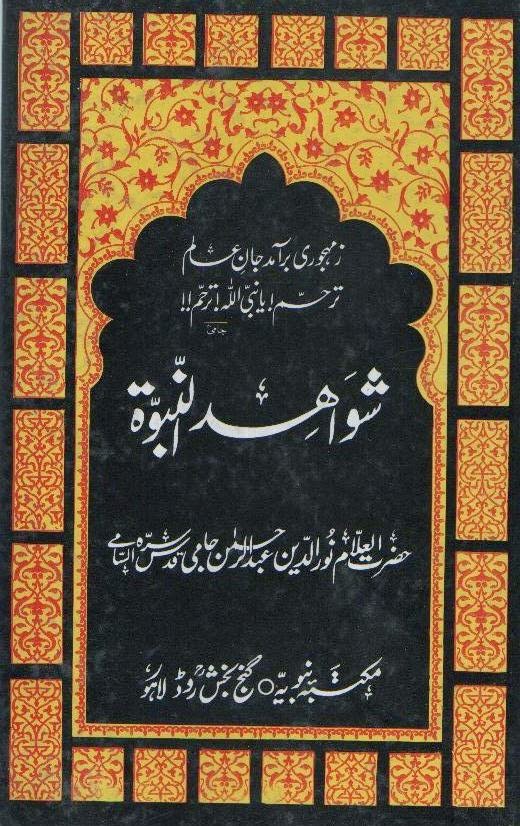 زمہجوری برآمد جانِ عالم
ترحّم! یا نبیّ اللہ! ترحّم!!
جامیؒ
شَوَاھِدُ النّبوّۃ
حضرت العلّام نُورالدین عبدالرحمٰن جامی قدّس سرّہ السامی
مکتبہ نبویہ ○ گنج بخش روڈ لاہور